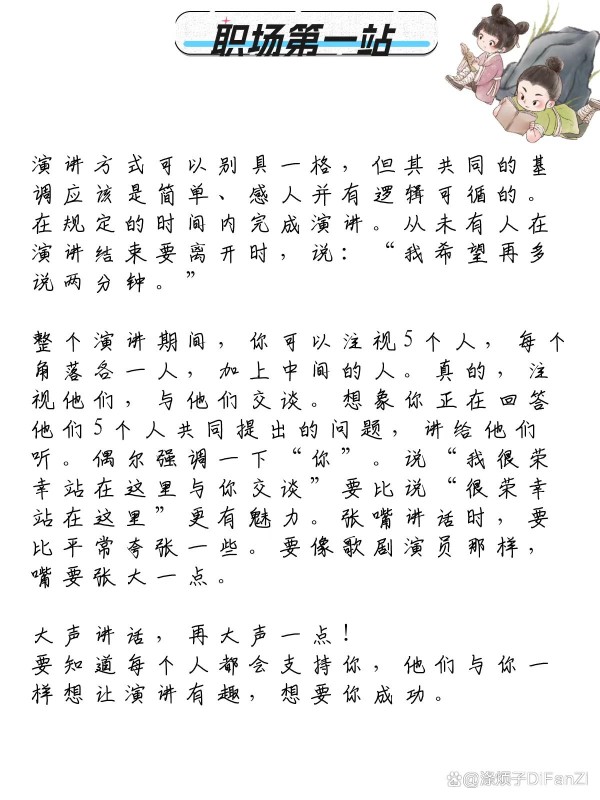 职场第一站
演讲方式可以别具一格，但其共同的基
调应该是简单、感人并有逻辑可循的。
在规定的时间内完成演讲。从未有人在
演讲结束要离开时，说：“我希望再多
说两分钟。”
整个演讲期间，你可以注视5个人，每个
角落各一人，加上中间的人。真的，注
视他们，与他们交谈。想象你正在回答
他们5个人共同提出的问题，讲给他们
听。偶尔强调一下“你”。说“我很荣
幸站在这里与你交谈”要比说“很荣幸
站在这里”更有魅力。张嘴讲话时，要
比平常夸张一些。要像歌剧演员那样，
嘴要张大一点。
大声讲话，再大声一点！
要知道每个人都会支持你，他们与你一
样想让演讲有趣，想要你成功。
@涤烦子DiFanZi